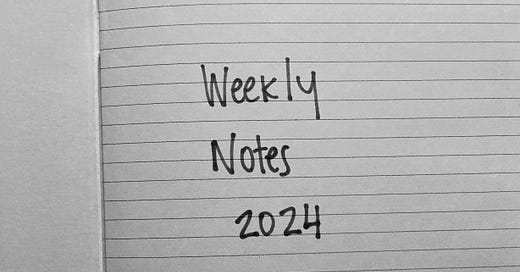 Weekly
Notes
2024